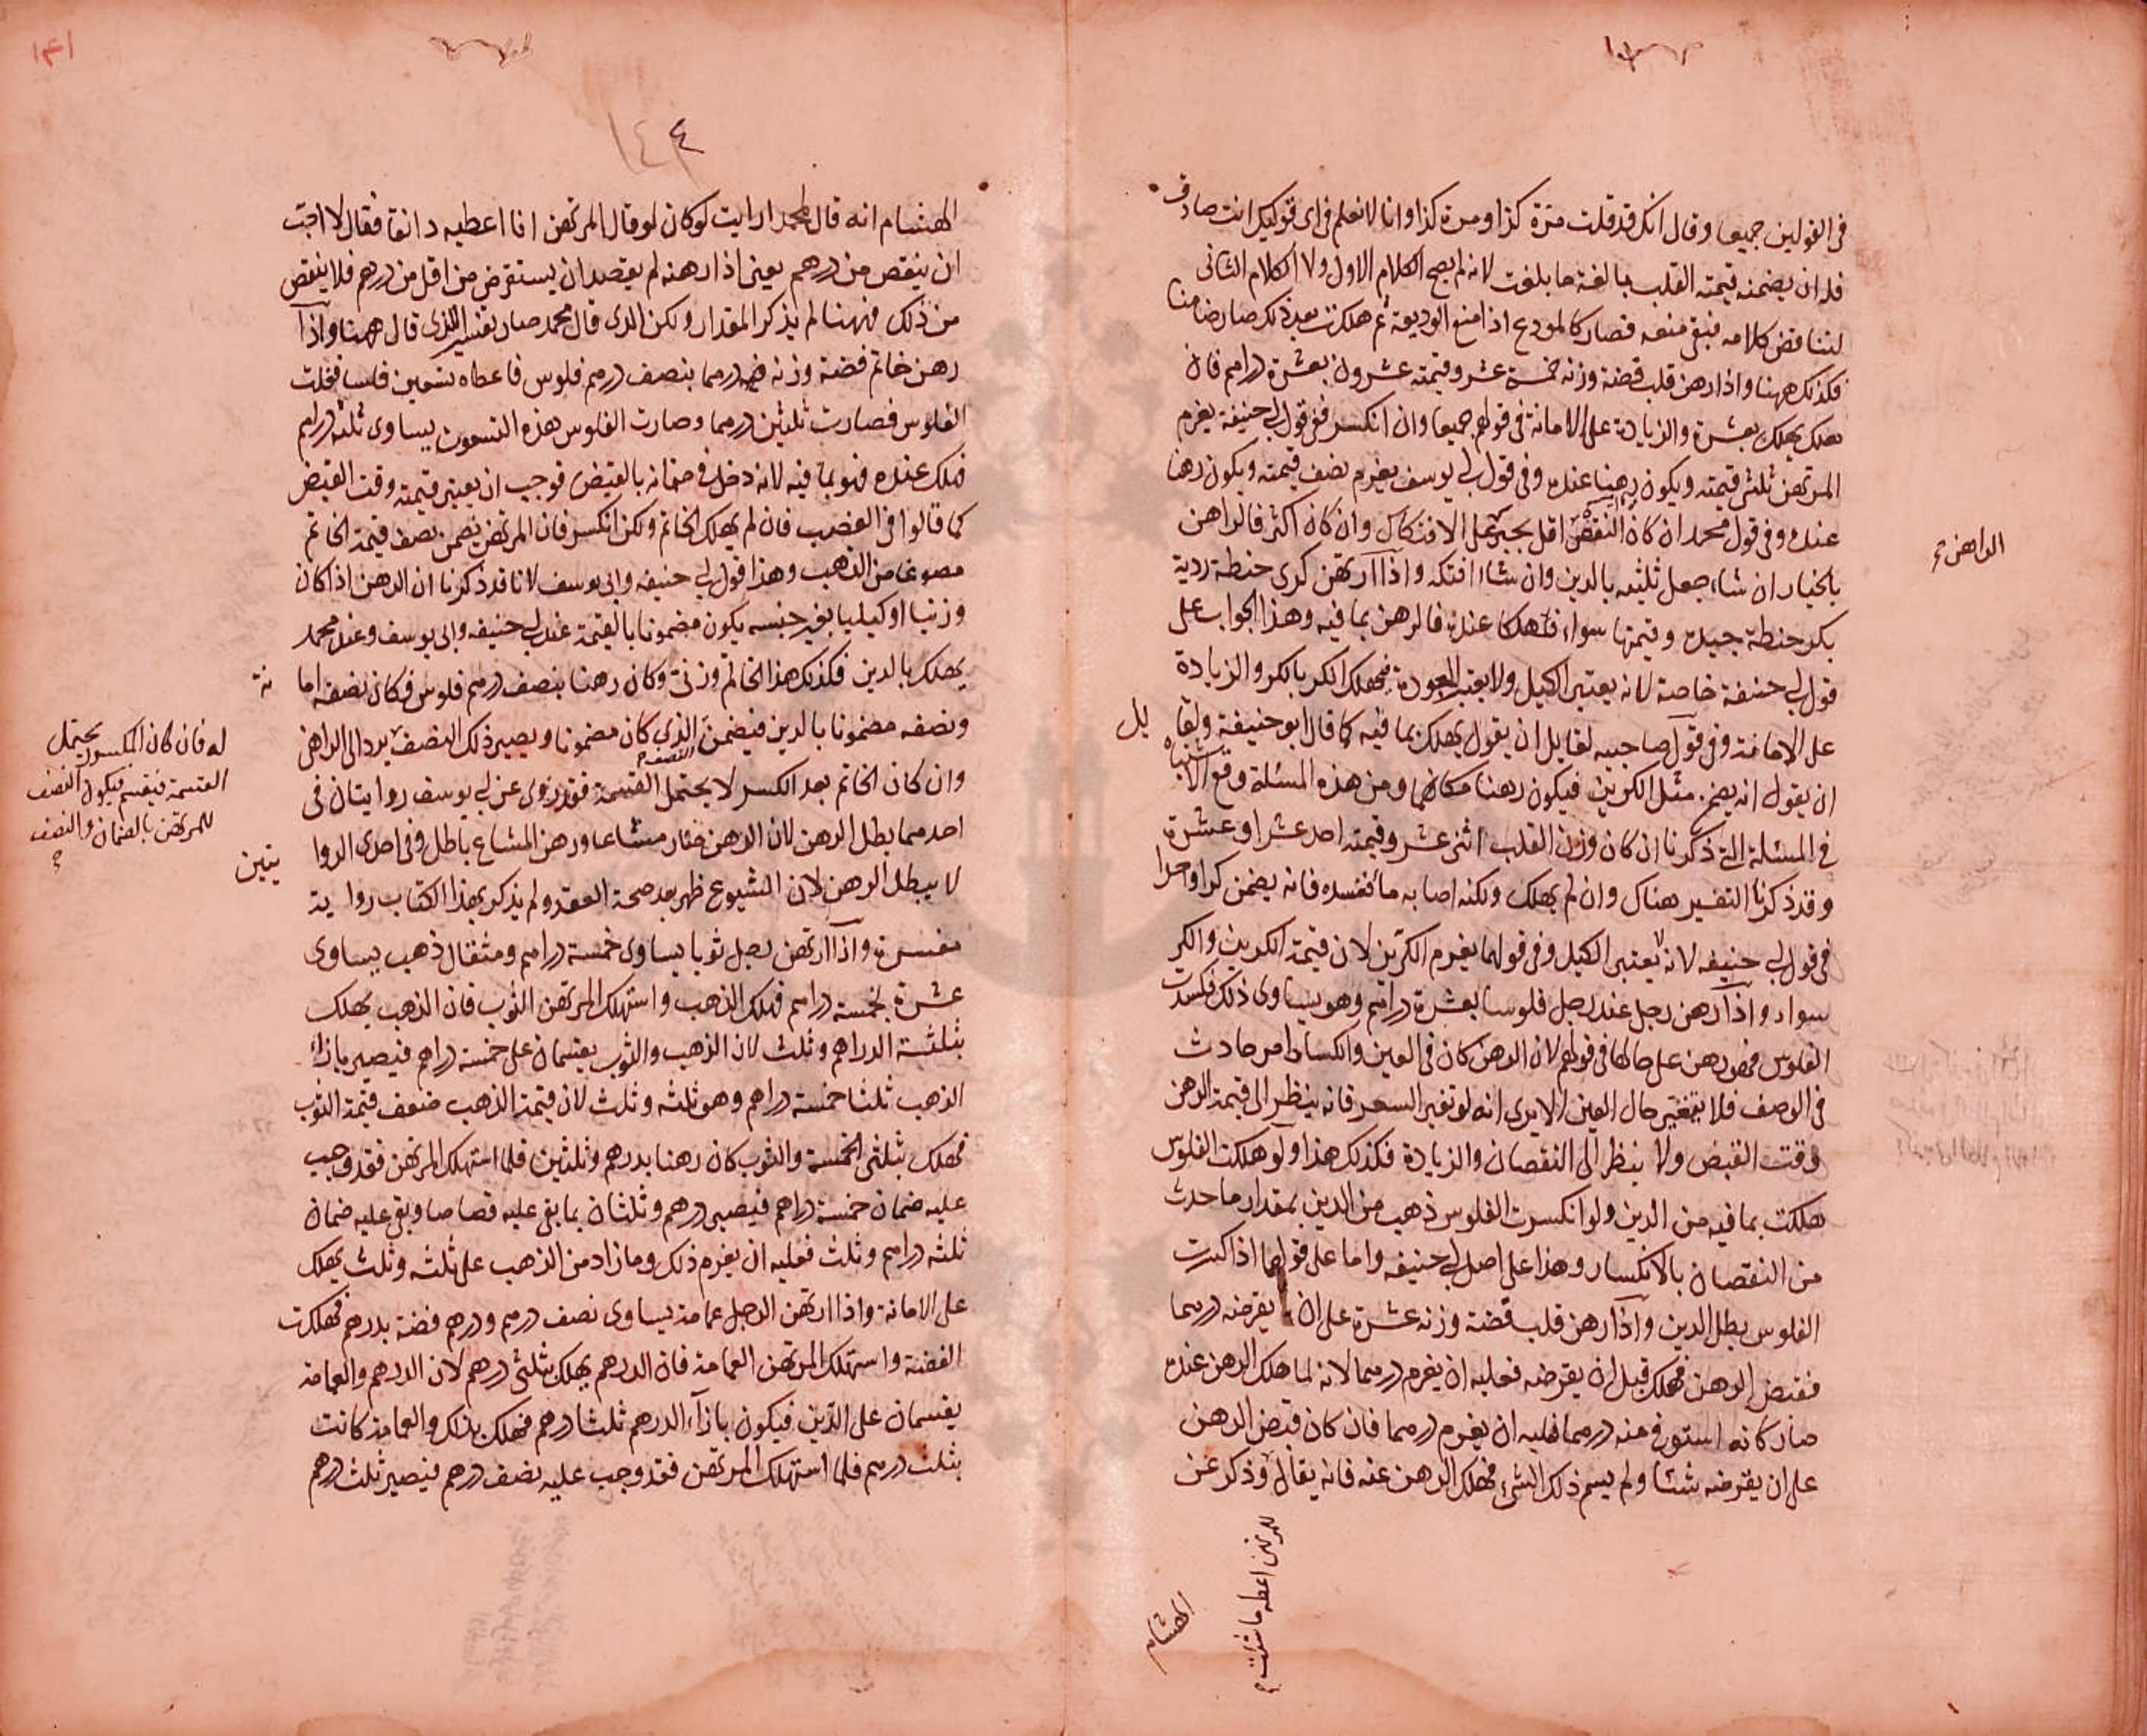 في القولين جميعا وقال انك قد قلت مرة كذا ومرة كذا وانا لا نعلم في اى قوليك انت صادق
فله ان يضمنه قيمته القلب بالغة ما بلغت لانه لم يصح الكلام الاول ولا الكلام الثانى
لتناقض كلامه فبقى منعه فصار كالمودع اذا منع الوديعة ثم هلكت بعد ذلك صار ضامنا
فكذلك ههنا واذا رهن قلب فضة وزنه خمسة عشر وقيمته عشرون بعشرة دراهم فان
هلك يهلك بعشرة والزيادة على الامانة في قولهم جميعا وان انكسر ففي قول ابي حنيفة يغرم
المرتهن ثلثى قيمته ويكون رهنا عنده وفي قول ابي يوسف يغرم نصف قيمته ويكون رهنا
عنده وفي قول محمد ان كان النقص اقل يجبر على الافتكاك وان كان اكثر فالراهن
الراهن
بالخيار ان شاء جعل ثلثيه بالدين وان شاء افتكه واذا ارتهن كرى حنطة ردية
بكر حنطة جيدة وقيمتها سواء فهلكا عنده فالرهن بما فيه وهذا الجواب على
قول ابي حنيفة خاصة لانه يعتبر الكيل ولا يعتبر الجودة فيهلك الكر بالكر والزيادة
على الامانة وفي قول صاحبيه لقايل ان يقول يهلك بما فيه كما قال ابو حنيفة ولقا يل
ان يقول انه يضمن مثل الكرين فيكون رهنا مكانهما ومن هذه المسئلة وقع الاشتباه
في المسئلة التي ذكرنا ان كان وزن القلب اثنى عشر وقيمته احد عشر او عشرة
وقد ذكرنا التفسير هناك وان لم يهلك ولكنه اصابه ما فنفسده فانه يضمن كرا واحدا
في قول ابي حنيفه لانه يعتبر الكيل وفي قولهما يغرم الكرين لان قيمة الكرين والكر
سواء واذا رهن رجل عند رجل فلوسا بعشرة دراهم وهو يساوى ذلك فكسدت
الفلوس فهو رهن على حالها في قولهم لان الرهن كان في العين والكساد امر حادث
في الوصف فلا يتغير حال العين الا يرى انه لو تغير السعر فانه ينظر الى قيمة الرهن
وقت القبض ولا ينظر الى النقصان والزيادة فكذلك هذا ولو هلكت الفلوس
هلكت بما فيه من الدين ولو انكسرت الفلوس ذهب من الدين بمقدار ما حدث
من النقصان بالانكسار وهذا على اصل ابي حنيفه واما على قولهما اذا كسرت
الفلوس بطل الدين واذا رهن قلب فضة وزنه عشرة على ان يقرضه درهما
فقبض الرهن فهلك قبل ان يقرضه فعليه ان يغرم درهما لانه لما هلك الرهن عنده
صار كانه استوفى منه درهما فعليه ان يغرم درهما فان كان قبض الرهن
على ان يقرضه شئا ولم يسم ذلك الشئ فهلك الرهن عنه فانه يقال وذكر عن
للمرتهن اعطه ما شئت
الهشام
الهشام انه قال لمحمد ارايت لو كان لو قال المرتهن انا اعطيه دانقا فقال لا اجبت
ان ينقص من درهم يعنى اذا رهنه لم يقصد ان يستقرض من اقل من درهم فلا ينقص
من ذلك فههنا لم يذكر المقدار ولكن الذى قال محمد صار تفسير الذى قال ههنا واذا
رهن خاتم فضة وزنه درهما بنصف درهم فلوس فاعطاه تسعين فلسا فغلت
الفلوس فصارت ثلثين درهما وصارت الفلوس هذه التسعون يساوى ثلثه دراهم
فهلك عنده فهو بما فيه لانه دخل في ضمانه بالقبض فوجب ان يعتبر قيمته وقت القبض
كما قالوا في الغضب فان لم يهلك الخاتم ولكن انكسر فان المرتهن يضمن نصف قيمة الخاتم
مصوغا من الذهب وهذا قول ابي حنيفه وابي يوسف لانا قد ذكرنا ان الرهن اذا كان
وزنيا او كيليا بغير جنسه يكون مضمونا بالقيمة عند ابي حنيفه وابي يوسف وعند محمد
يهلك بالدين فكذلك هذا الخاتم وزنى وكان رهنا بنصف درهم فلوس فكان نصفه اما نة
ونصفه مضمونا بالدين فيضمن النصف الذى كان مضمونا ويصير ذلك النصف يرد الى الراهن
له فان كان المكسور يحتمل
القسمة فيقسم فيكون النصف
للمرتهن بالضمان والنصف
وان كان الخاتم بعد الكسر لا يحتمل القسمة فقد روى عن ابي يوسف روايتان في
احدهما بطل الرهن لان الرهن صار مشاعا ورهن المشاع باطل وفي احدى الروا يتين
لا يبطل الرهن لان الشيوع ظهر بعد صحة العقد ولم يذكر بهذا الكتاب رواية
مفسرة واذا ارتهن رجل ثوبا يساوى خمسة دراهم ومثقال ذهب يساوى
عشرة بخمسة دراهم فهلك الذهب واستهلك المرتهن الثوب فان الذهب يهلك
بثلثة الدراهم وثلث لان الذهب والثوب يقسمان على خمسة دراهم فيصير بازاء
الذهب ثلثا خمسة دراهم وهو ثلثه وثلث لان قيمة الذهب ضعف قيمة الثوب
فهلك بثلثى الخمسة والثوب كان رهنا بدرهم وثلثين فلما استهلك المرتهن فقد وجب
عليه ضمان خمسة دراهم فيصير درهم وثلثان بما بقى عليه قصاصا وبقى عليه ضمان
ثلثه دراهم وثلث فعليه ان يغرم ذلك وما زاد من الذهب على ثلثه وثلث يهلك
على الامانة واذا ارتهن الرجل عمامة يساوى نصف درهم ودرهم فضة بدرهم فهلكت
الفضة واستهلك المرتهن العمامة فان الدرهم يهلك بثلثى درهم لان الدرهم والعمامة
يقسمان على الدين فيكون بازاء الدرهم ثلثا درهم فهلك بذلك والعمامة كانت
بثلث درهم فلما استهلك المرتهن فقد وجب عليه نصف درهم فيصير ثلث درهم